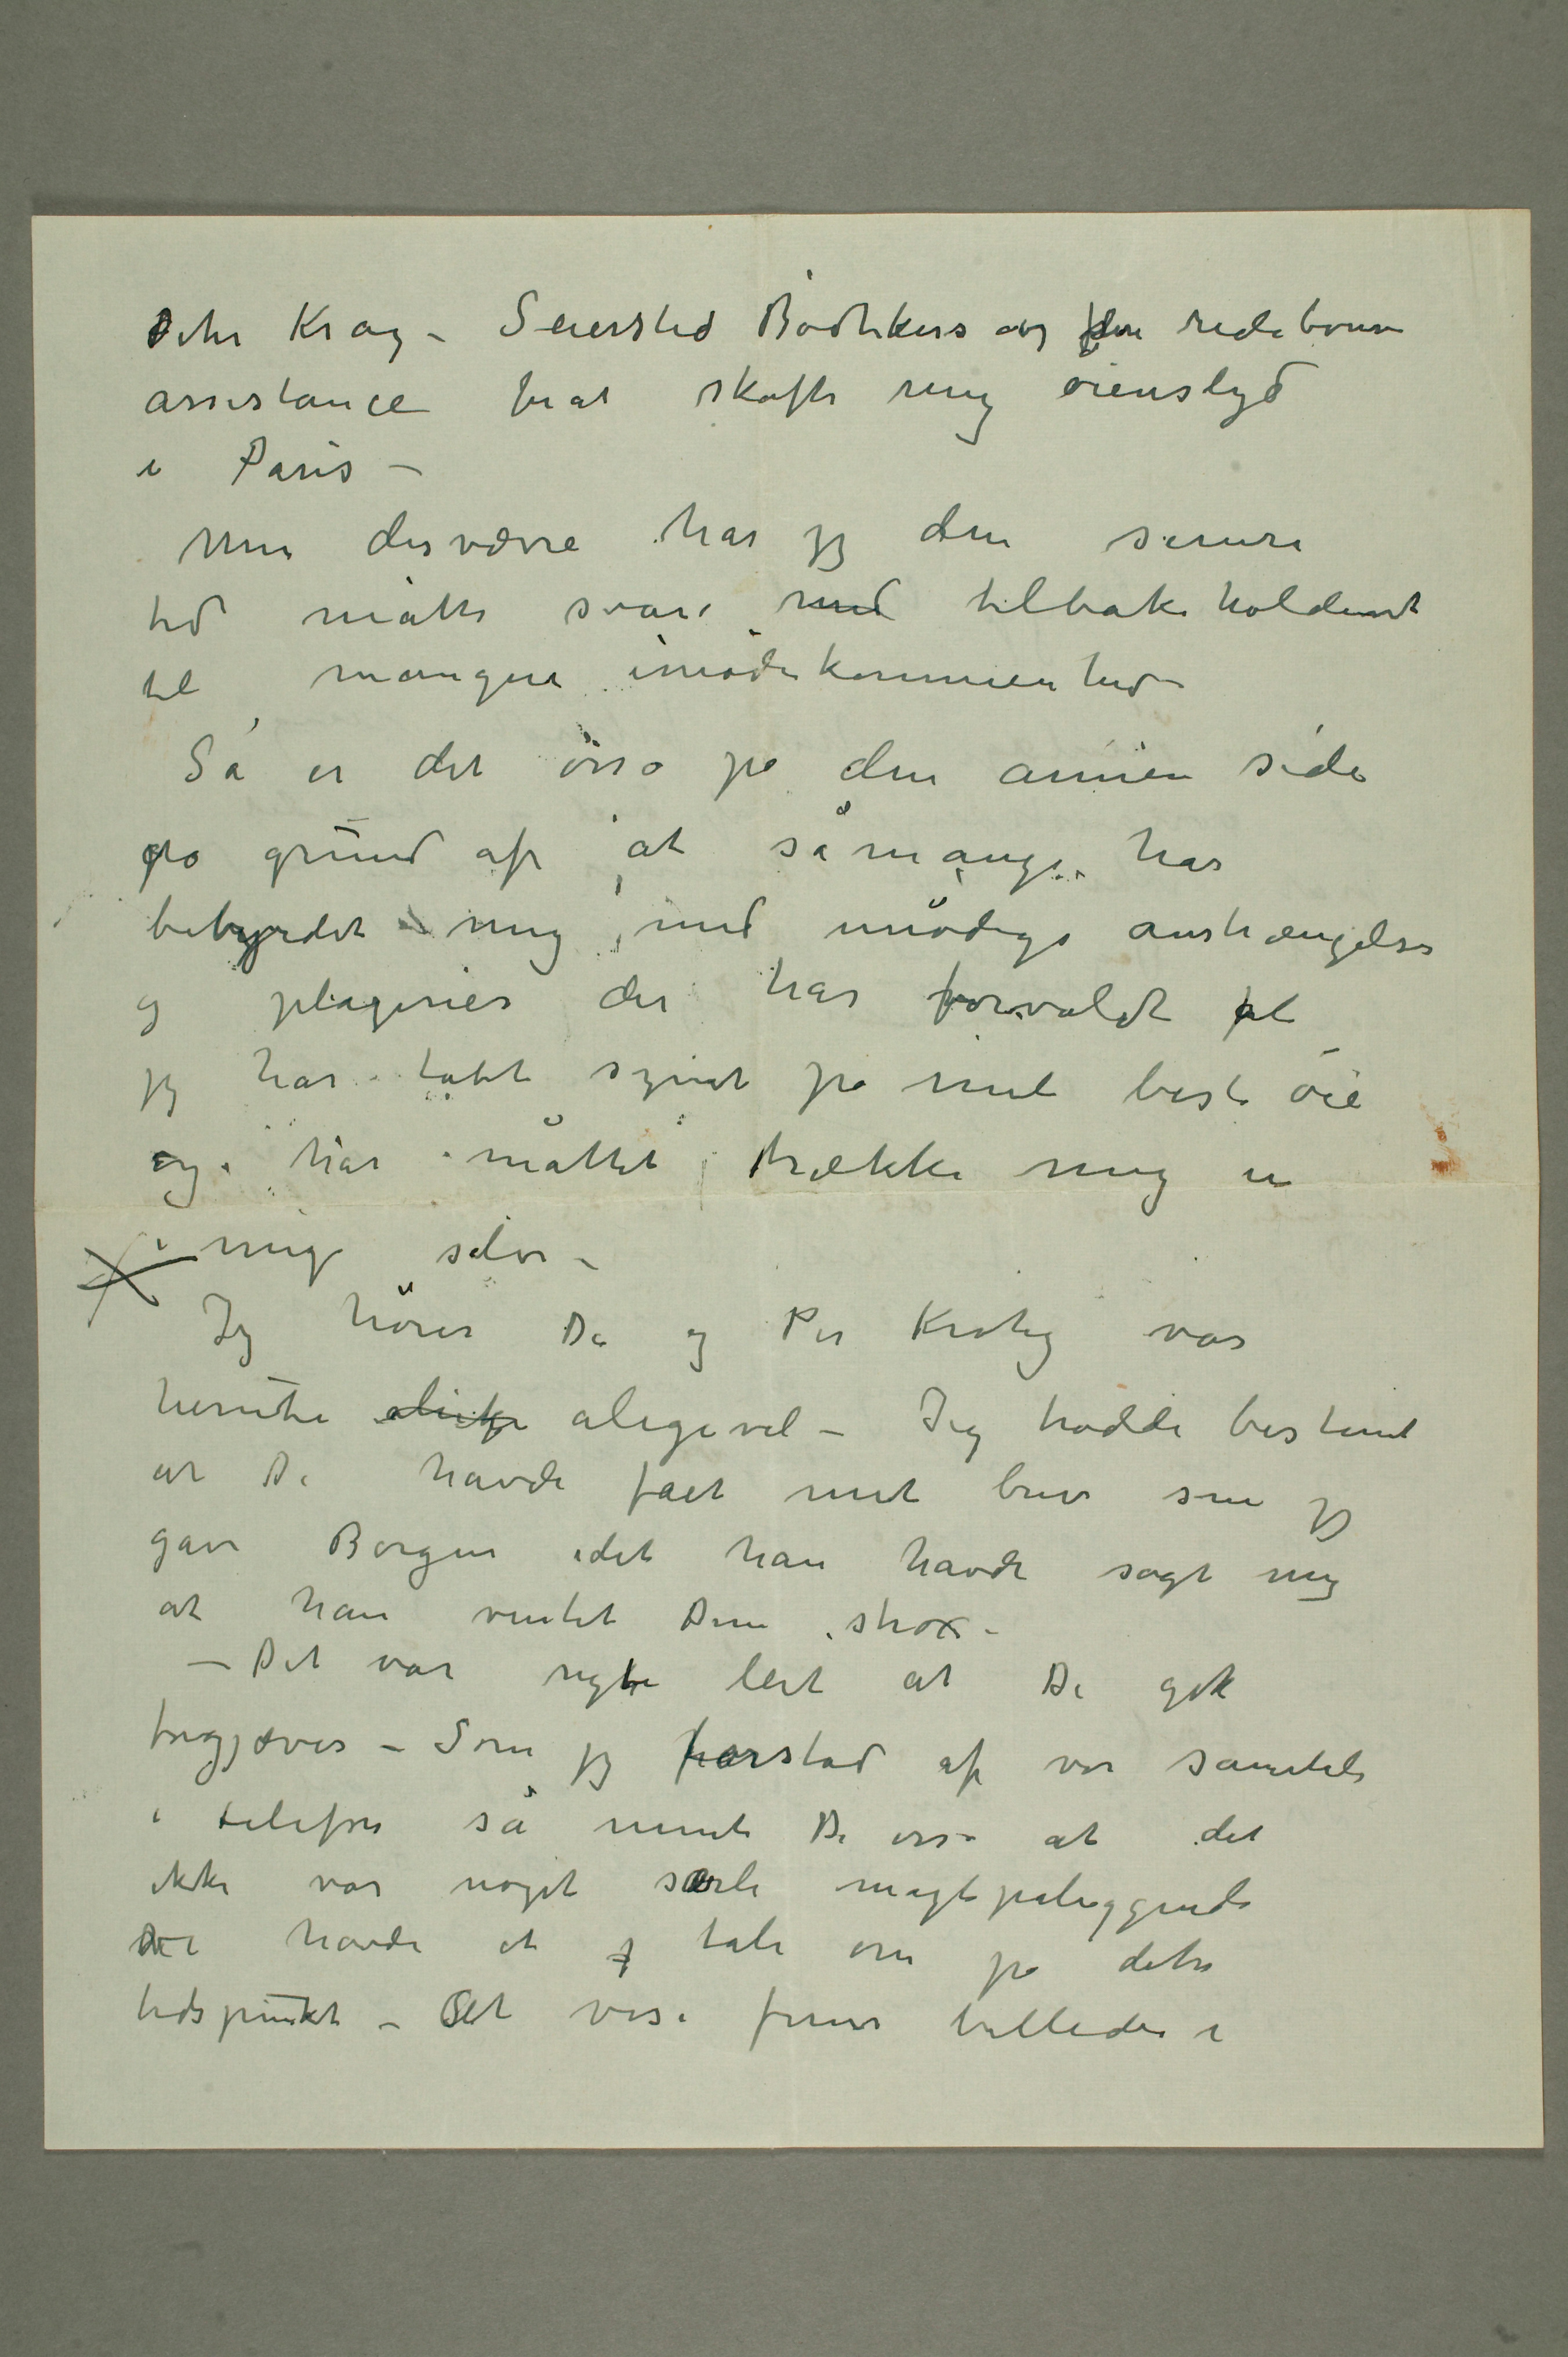 Deres Krag – Seiersted Bødtkers og redebonne
assistance forat skaffe mig øienslyd
i Paris –
Men desværre har jeg den senere
tid måtte svare med tilbakeholdenhet
til mangen imødekommenhed –
Så er det også på den annen side
på grund af at så mange har
bebyrdet mig med unødige anstrængelser
og plagerier der har forvoldt at
jeg har tabt synet på mit beste øie
og har måttet trække mig in
i mig selv –
Jeg hører De og Per Krohg var
herute aligevel – Jeg trodde bestemt
at De havde fået mit brev som jeg
gav Borgen idet han havde sagt mig
at han ventet Dem strax –
– Det var rigti leit at De gik
forgjæves – Som jeg forstod af vor samtale
i telefon så mente De også at det
ikke var noget særli magtpåliggende
vi havde at tale om på dette
tidspunkt – At vise frem billeder i